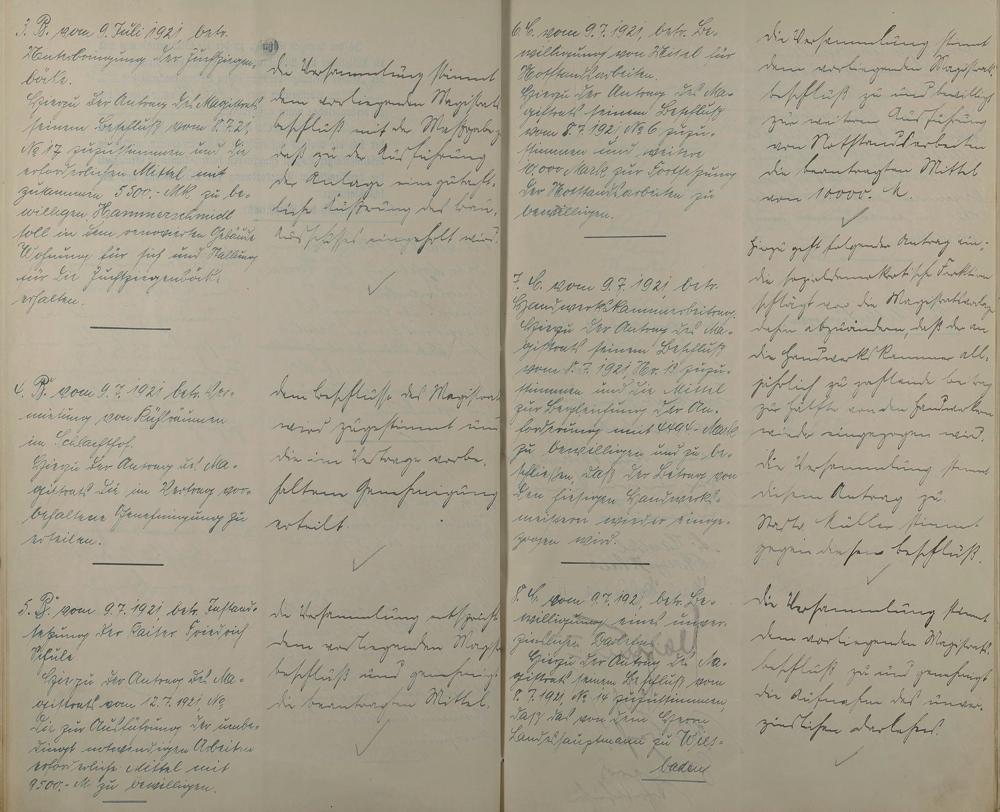 3. B. vom 9. Juli 1921, betr.
Unterbringung der Zuchtziegen-
böcke.
Hierzu der Antrag des Magistrats
seinem Beschluß vom 8.7.21
No 17 zuzustimmen und die
erforderlichen Mittel mit
zusammen 5500.- Mk zu be-
willigen. Hammerschmidt
soll in dem renovierten Gebäude
Wohnung für sich und Stallung
für die Zuchtziegenböcke
erhalten.
die Versammlung stimmt
dem vorliegenden Magistrats
beschluß mit der Maßgabe zu
daß zu der Ausführung
der Anlage eine gutacht-
liche Äußerung des Bau-
Ausschusses eingeholt wird.
4. B. vom 9.7.1921, betr. Ver-
mietung von Kühlräumen
im Schlachthof.
Hierzu der Antrag des Ma-
gistrats die im Vertrag vor-
behaltene Genehmigung zu
erteilen.
dem Beschlusse des Magistrats
wird zugestimmt und
die im Vertrage vorbe-
haltene Genehmigung
erteilt
5. B. vom 9.7.1921, betr. Instand-
setzung der Kaiser Friedrich
Schule.
Hierzu der Antrag des Ma-
gistrats vom 12.7.1921, No
die zur Ausführung der unbe-
dingt notwendigen Arbeiten
erforderliche Mittel mit
9500.- M zu bewilligen.
die Versammlung entspricht
dem vorliegenden Magist
beschluß und genehmigt
die beantragten Mittel.
6. C. vom 9.7.1921, betr. Be-
willigung von Mittel für
Notstandsarbeiten.
Hierzu der Antrag des Ma-
gistrats seinem Beschluß
vom 8.7.1921 No 6 zuzu-
stimmen und weitere
10,000 Mark zur Fortsetzung
der Notstandsarbeiten zu
bewilligen.
die Versammlung stimmt
dem vorliegenden Magistrats
beschluß zu und bewilligt
zur weiteren Ausführung
von Notstandsarbeiten
die beantragten Mittel
von 10000.- M.
7. C. vom 9.7.1921, betr.
Handwerkskammerbeitrag.
Hierzu der Antrag des Ma-
gistrats seinem Beschluß
vom 8.7.1921 Nr. 13 zuzu-
stimmen und die Mittel
zur Begleichung der An-
forderung mit 4494.- Mark
zu bewilligen und zu be-
schließen, daß der Beitrag von
den hiesigen Handwerks-
meistern wieder einge-
zogen wird.
Hierzu geht folgender Antrag ein:
die sozialdemokratische Fraktion
schlägt vor die Magistratsvorlage
dahin abzuändern, daß der an
die Handwerkskammer all-
jährlich zu zahlende Betrag
zur Hälfte von den Handwerkern
wieder eingezogen wird.
die Versammlung stimmt
diesem Antrag zu.
Stadtv. Müller stimmt
gegen diesen Beschluß.
8. C. vom 9.7.1921, betr. Be-
willigung eines unver-
zinslichen Darlehns.
Hierzu der Antrag des Ma-
gistrats seinem Beschluß vom
8.7.1921 No 14 zuzustimmen
daß das von dem Herrn
Landeshauptmann zu Wies-
baden
die Versammlung stimmt
dem vorliegenden Magistrats
beschluß zu und genehmigt
die Aufnahme des unver-
zinslichen Darlehns.